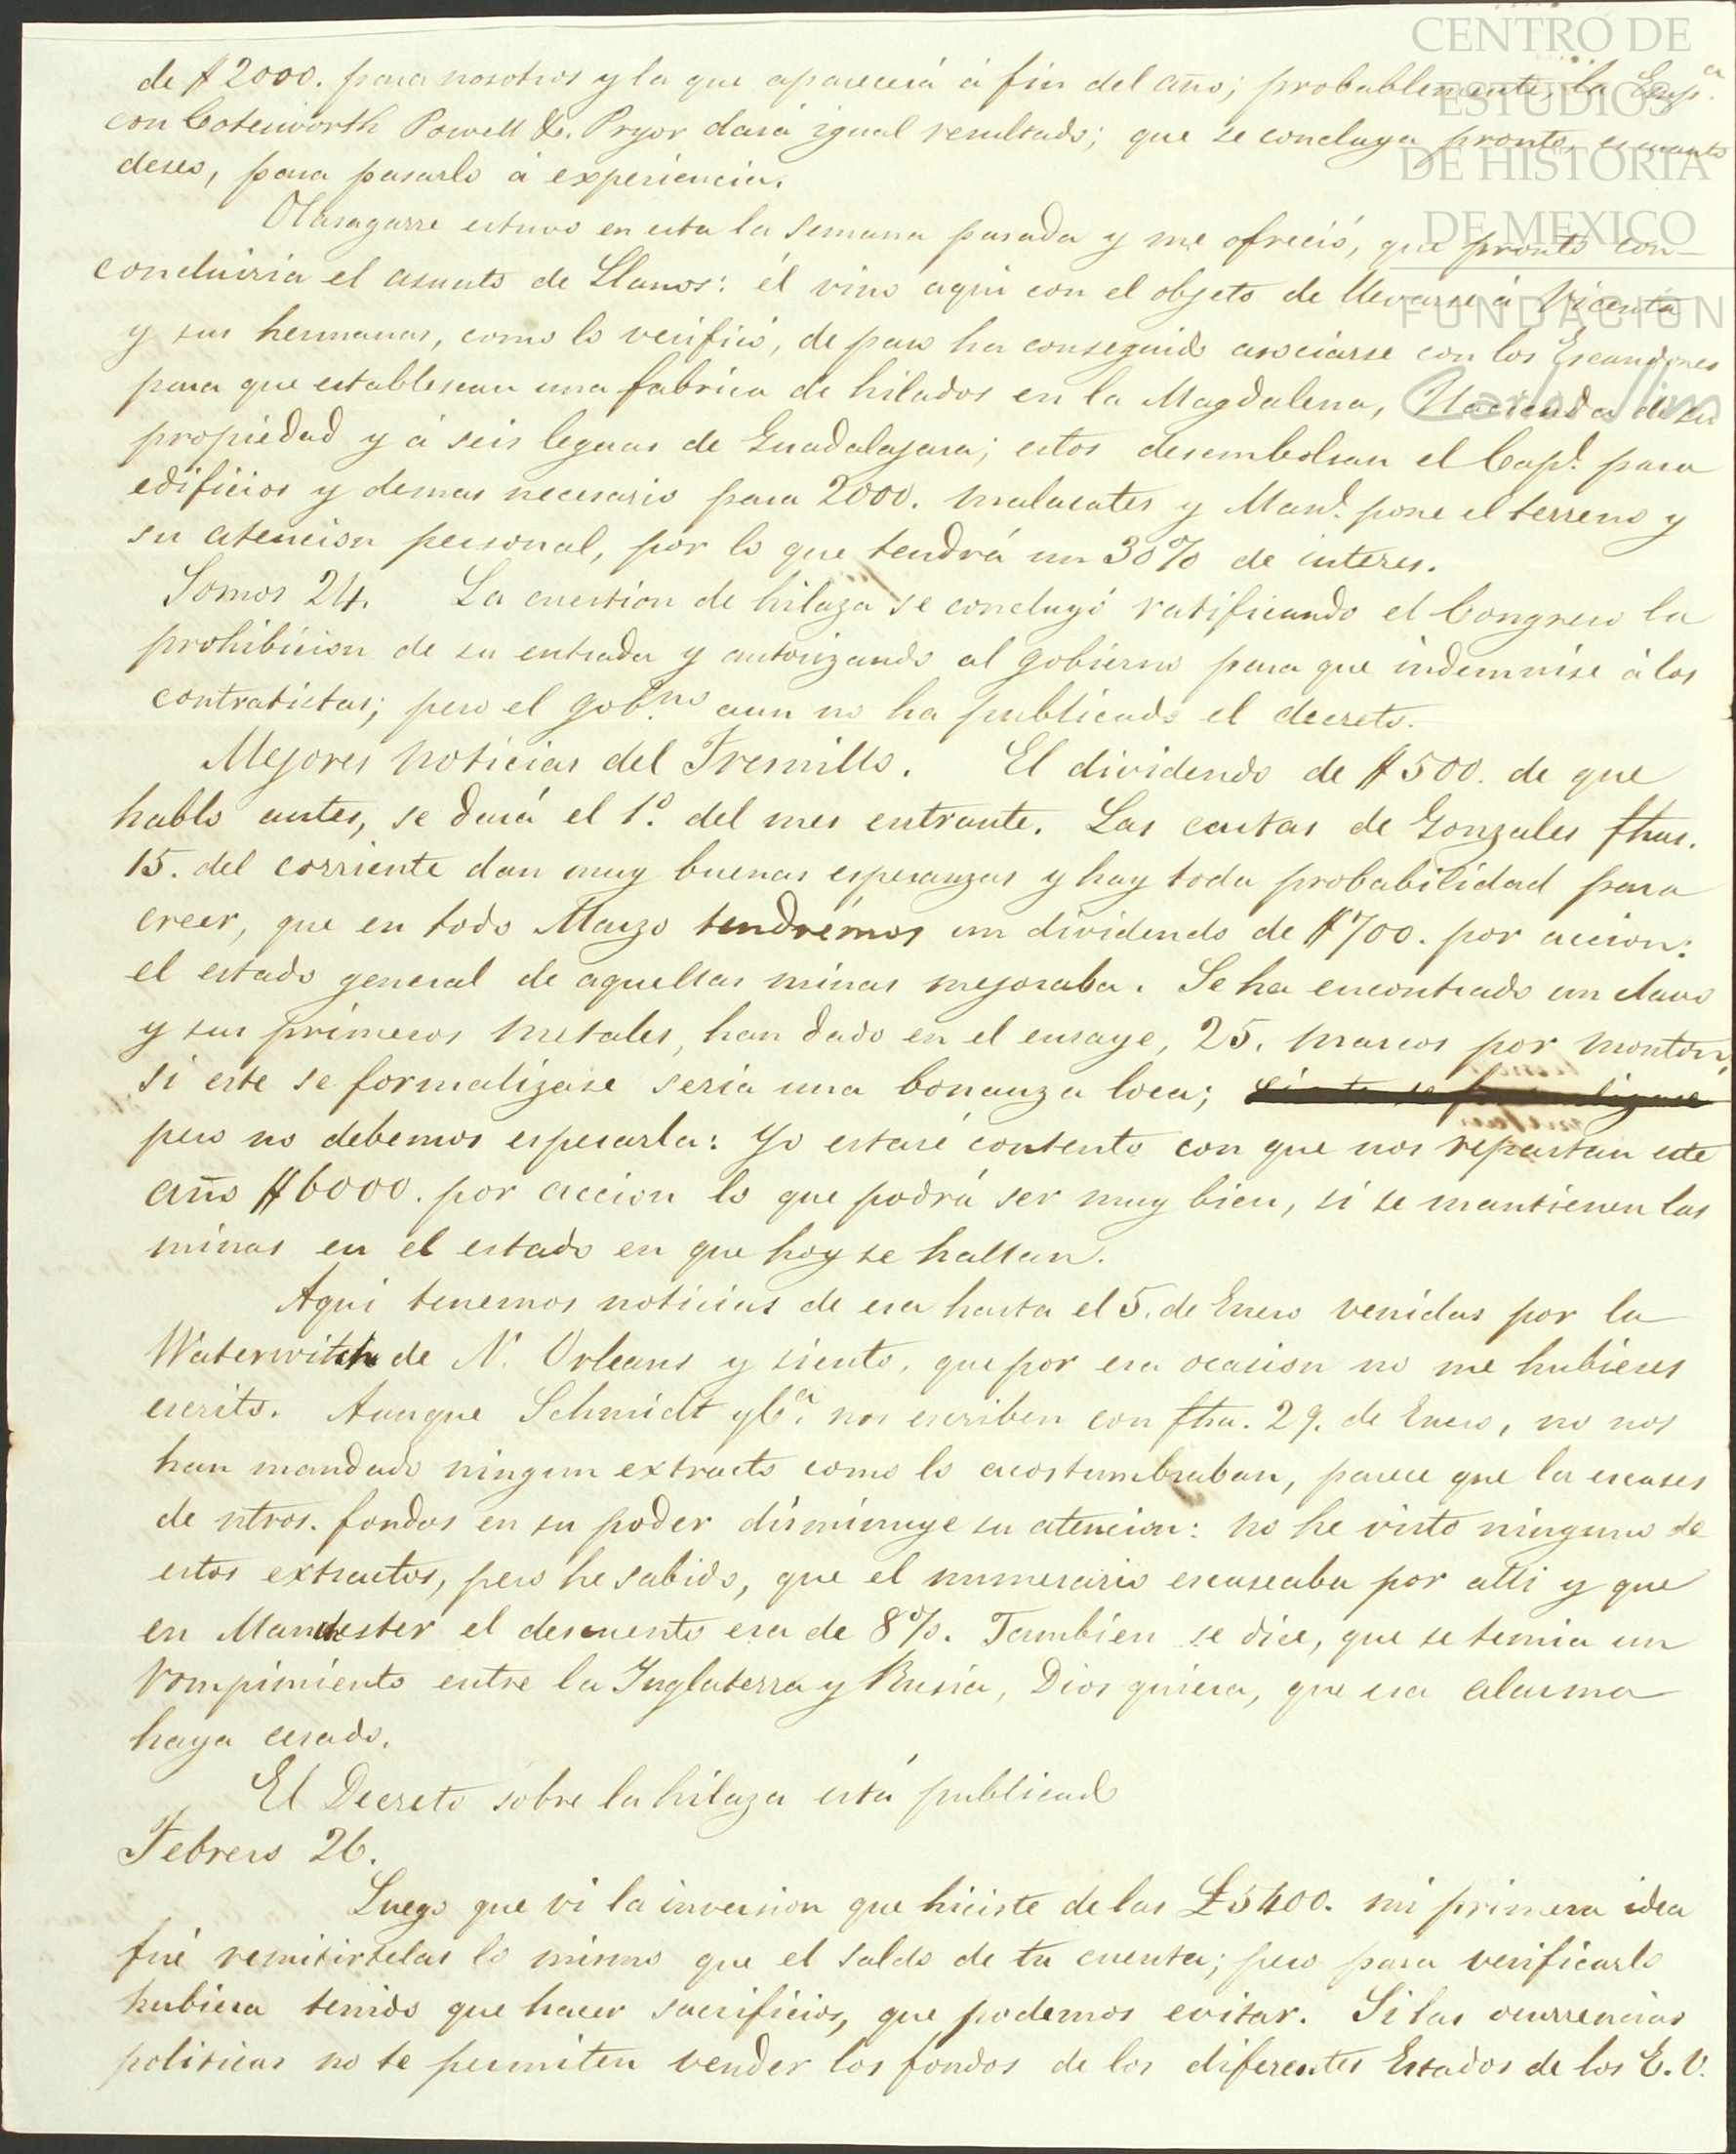 CENTRO DE
ESTUDIOS
DE HISTORIA
DE MEXICO
FUNDACION
Carlos Slim
de $2000. para nosotros y la que aparecerá á fin del año; probablemente, la Comp.ª
con Cotesworth Powell &. Pryor dará igual resultado; que se concluya pronto, es cuanto
deseo, para pasarlo á experiencia.
Olasagarre estuvo en esta la semana pasada y me ofreció, que pronto con-
concluiria el asunto de Llanos: él vino aqui con el objeto de llevarse á Vicenta
y sus hermanas, como lo verificó, de paso ha conseguido asociarse con los Escandones
para que establescan una fabrica de hilados en la Magdalena, Hacienda de su
propiedad y á seis leguas de Guadalajara; estos desembolsan el Cap.l para
edificios y demas necesario para 2000. malacates y Man.l pone el terreno y
su atencion personal, por lo que tendrá un 30% de interes.
Somos 24. La cuestion de hilaza se concluyó ratificando el Congreso la
prohibicion de su entrada y autorizando al gobierno para que indemnise á los
contratistas; pero el gob.no aun no ha publicado el decreto.
Mejores noticias del Fresnillo. El dividendo de $500. de que
hablo antes, se dará el 1º. del mes entrante. Las cartas de Gonzales fhas.
15. del corriente dan muy buenas esperanzas y hay toda probabilidad para
creer, que en todo Marzo tendrémos un dividendo de $700. por accion:
el estado general de aquellas minas mejoraba. Se ha encontrado un clavo
y sus primeros metales, han dado en el ensaye, 25. marcos por monton,
si este se formalizase seria una bonanza loca; si este se formalizase
pero no debemos esperarla: Yo estaré contento con que nos repartan este
año $6000. por accion lo que podrá ser muy bien, si se mantienen las
minas en el estado en que hoy se hallan.
Aqui tenemos noticias de esa hasta el 5. de Enero venidas por la
Waterwitch de N. Orleans y siento, que por esa ocasion no me hubieses
escrito. Aunque Schmidt y Cª. nos escriben con fha. 29. de Enero, no nos
han mandado ningun extracto como lo acostumbraban, parece que la escases
de ntros. fondos en su poder disminuye su atencion: no he visto ninguno de
estos extractos, pero he sabido, que el numerario escaseaba por alli y que
en Manchester el descuento era de 8%. Tambien se dice, que se temia un
rompimiento entre la Inglaterra y Rusia, Dios quiera, que esa alarma
haya cesado.
El Decreto sobre la hilaza está publicado
Febrero 26.
Luego que vi la inversion que hiciste de las £5400. mi primera idea
fué remitirtelas lo mismo que el saldo de tu cuenta; pero para verificarlo
hubiera tenido que hacer sacrificios, que podemos evitar. Si las ocurrencias
politicas no te permiten vender los fondos de los diferentes Estados de los E. U.